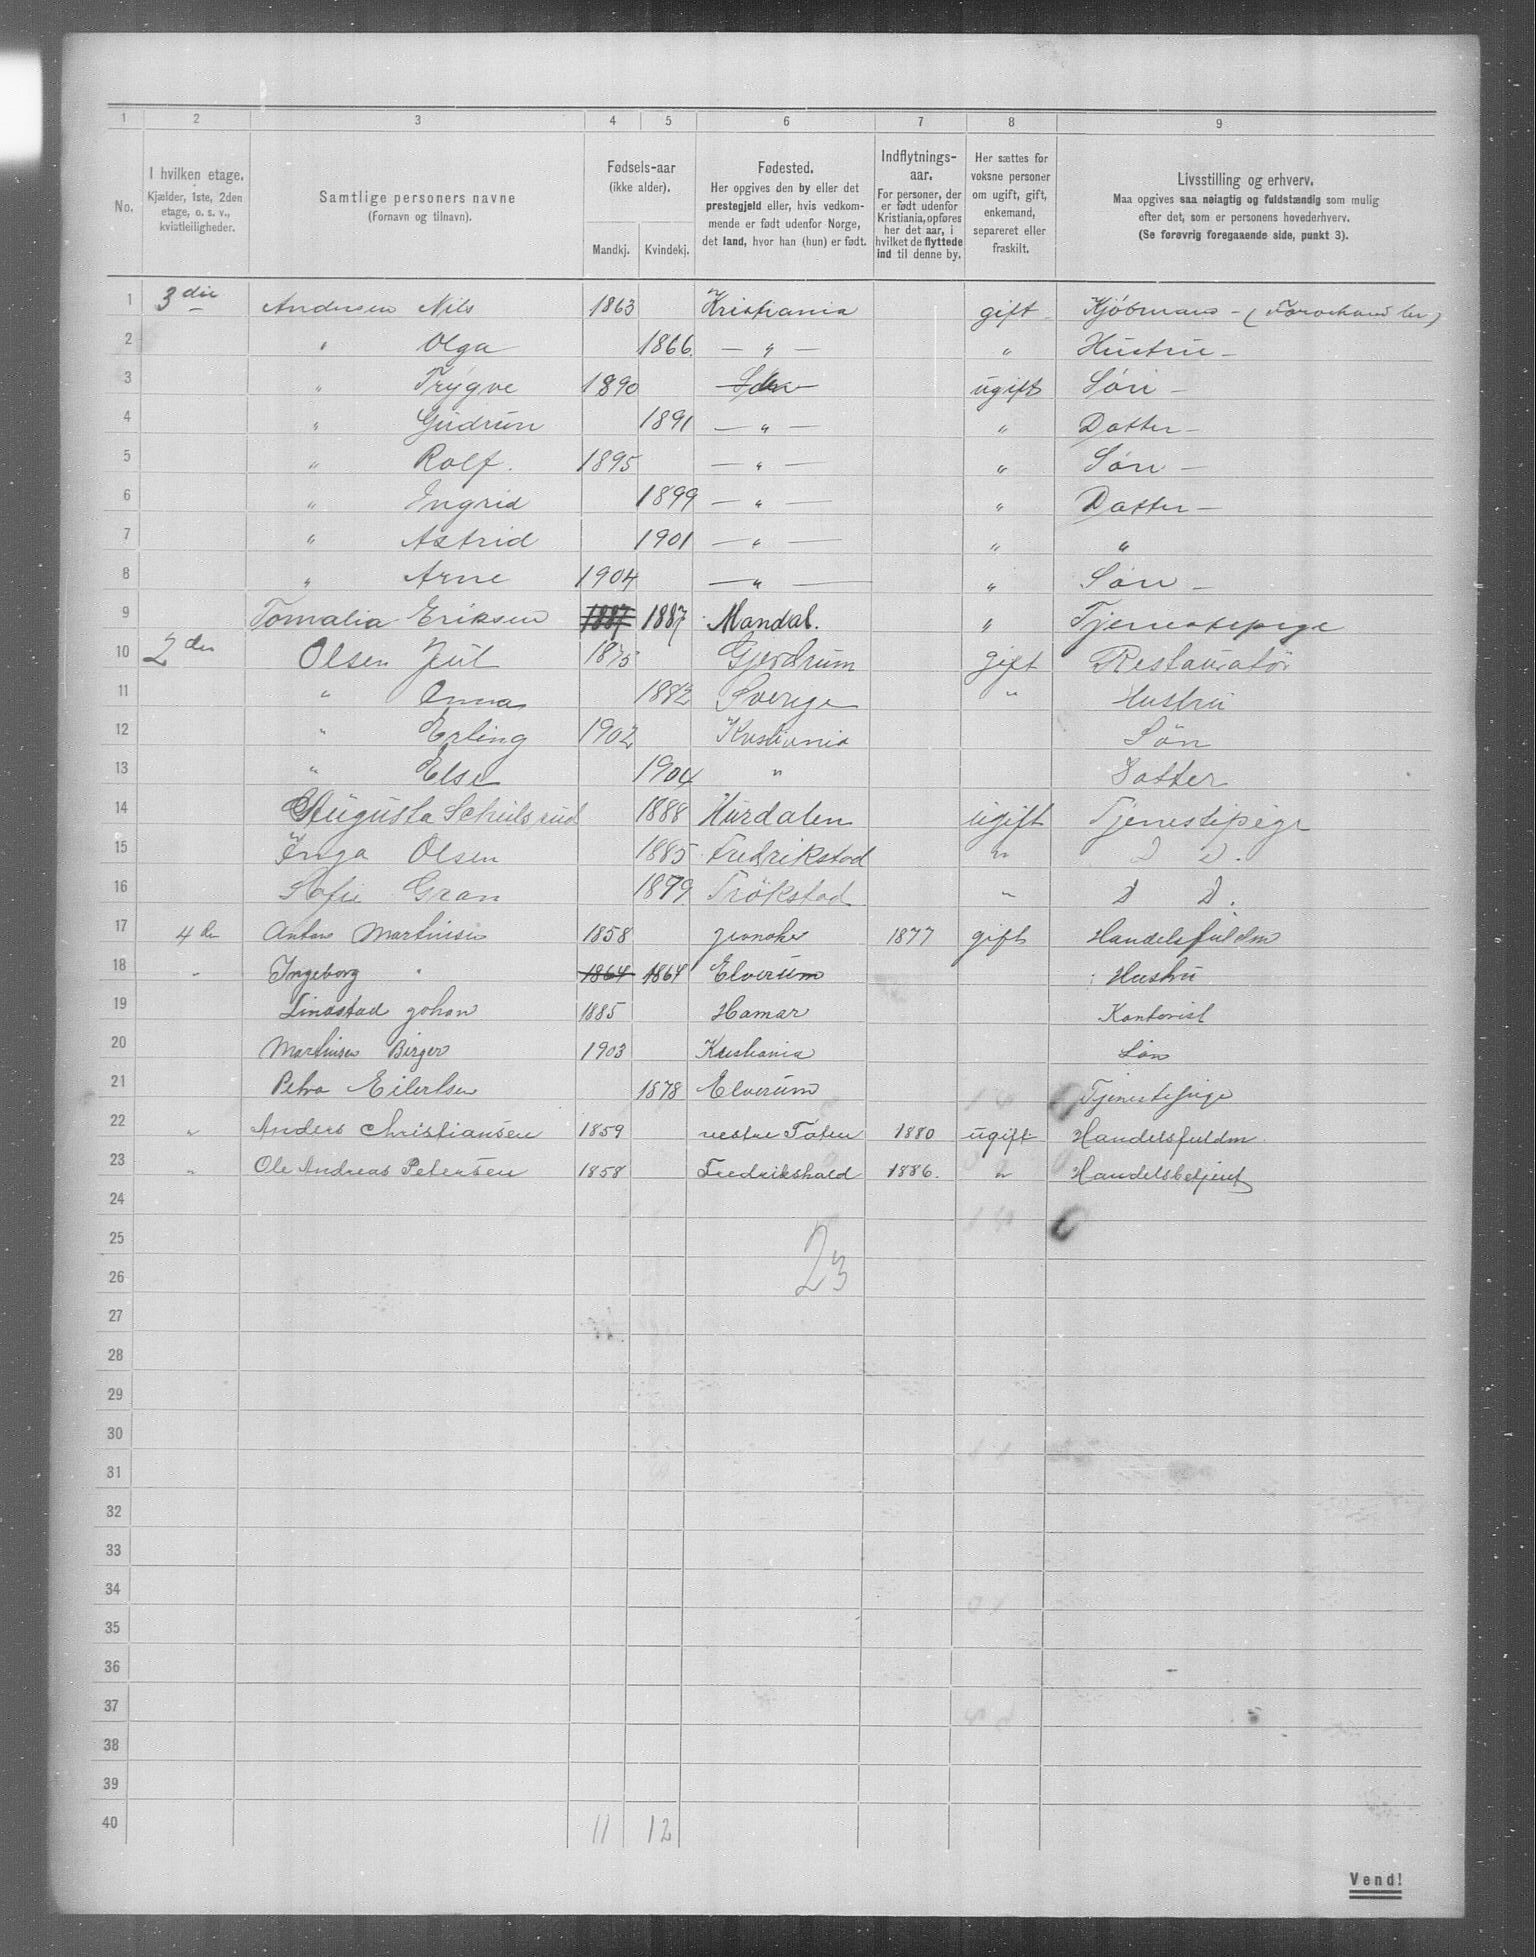 1 2 3 4 5 6 7 8 9
No. I hvilken etage. Kjælder, 1ste, 2den etage, o. s. v., kvistleiligheder. Samtlige personers navne (Fornavn og tilnavn). Fødsels-aar (ikke alder). Mandkj. Kvindekj. Fødested. Her opgives den by eller det prestegjeld eller, hvis vedkommende er født udenfor Norge, det land, hvor han (hun) er født. Indflytnings-aar. For personer, der er født udenfor Kristiania, opføres her det aar, i hvilket de flyttede ind til denne by. Her sættes for voksne personer om ugift, gift, enkemand, separeret eller fraskilt. Livsstilling og erhverv. Maa opgives saa nøiagtig og fuldstændig som mulig efter det, som er personens hovederhverv. (Se forøvrig foregaaende side, punkt 3).
1 3die Andersen Nils 1863 Kristiania gift Kjöbmand - (
2 " Olga 1866. — " — " Hustru -
3 " Trygve 1890 ugift Søn -
4 " Gudrun 1891 — " — " Datter -
5 " Rolf. 1895 — " — " Søn -
6 " Ingrid 1899 — " — " Datter -
7 " Astrid 1901 — " — " "
8 " Arne 1904 — " — " Søn -
9 Tomalia Eriksen 1887 1887 Mandal. " Tjenestepige
10 2den Olsen Jul 1875 Gjerdrum gift Restauratör
11 " Anna 1882 Sverige " Hustru
12 " Erling 1902 Kristiania Sön
13 " Else 1904 " Datter
14 Augusta Schulsrud 1888 Hurdalen ugift Tjenestepige
15 Inga Olsen 1885 Fredrikstad " D D.
16 Sofie Gran 1879 Trökstad " D D.
17 4de Anton Martinsen 1858 1877 gift Handelsfuldm
18 " Ingeborg " 1864 1864 Elverum Hustru
19 Lindstad Johan 1885 Hamar Kontorist
20 Martinsen Birger 1903 Kristiania Sön
21 Petra Eilertsen 1878 Elverum Tjenestepige
22 " Anders Christiansen 1859 vestre Toten 1880 ugift Handelsfuldm
23 " Ole Andreas Petersen 1858 Fredrikshald 1886. " Handelsbetjent
24
25
26 23
27
28
29
30
31
32
33
34
35
36
37
38
39
40 11 12
Vend!